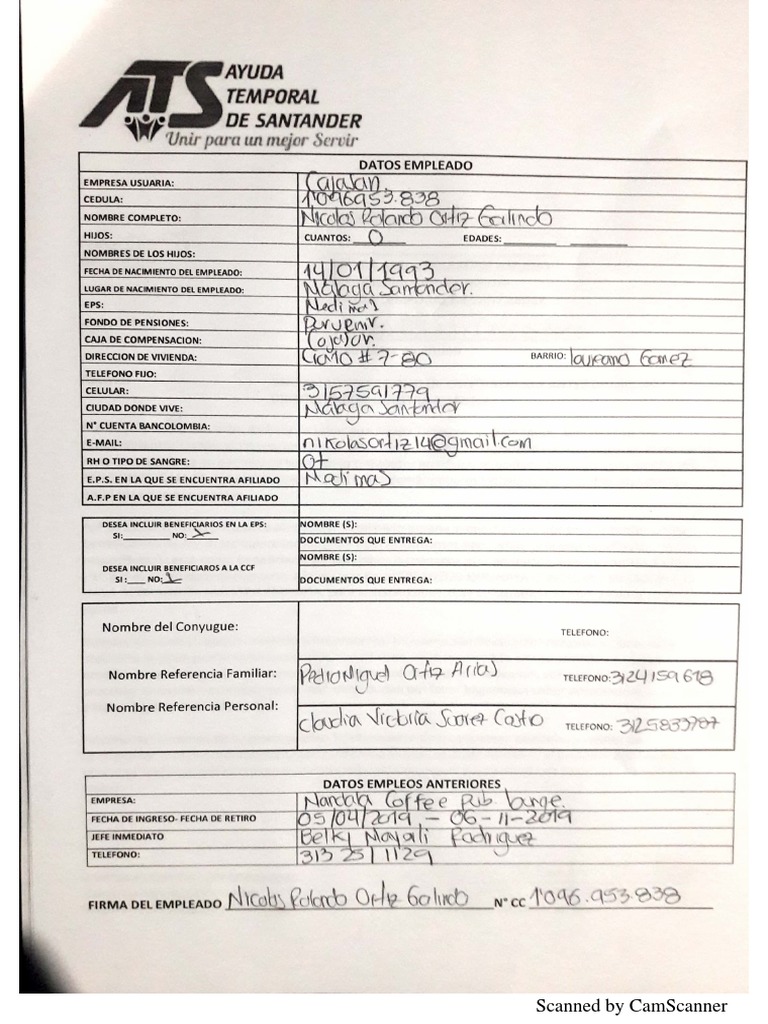 ATS AYUDA
TEMPORAL
DE SANTANDER
Unir para un mejor Servir
DATOS EMPLEADO
EMPRESA USUARIA: Cajasan.
CEDULA: 1'096953.838
NOMBRE COMPLETO: Nicolas Rolando Ortiz Galindo
HIJOS: CUANTOS: 0 EDADES:
NOMBRES DE LOS HIJOS:
FECHA DE NACIMIENTO DEL EMPLEADO: 14/01/1993
LUGAR DE NACIMIENTO DEL EMPLEADO: Málaga Santander.
EPS: Medimas
FONDO DE PENSIONES: Porvenir.
CAJA DE COMPENSACION:
DIRECCION DE VIVIENDA: # 7-80 BARRIO: laureano Gomez
TELEFONO FIJO:
CELULAR: 3157591779
CIUDAD DONDE VIVE: Málaga Santander
N° CUENTA BANCOLOMBIA:
E-MAIL: nikolasortiz14@gmail.com
RH O TIPO DE SANGRE: O+
E.P.S. EN LA QUE SE ENCUENTRA AFILIADO Medimas
A.F.P EN LA QUE SE ENCUENTRA AFILIADO
DESEA INCLUIR BENEFICIARIOS EN LA EPS: NOMBRE (S):
SI: NO: X DOCUMENTOS QUE ENTREGA:
NOMBRE (S):
DESEA INCLUIR BENEFICIAROS A LA CCF
SI : NO: X DOCUMENTOS QUE ENTREGA:
Nombre del Conyugue: TELEFONO:
Nombre Referencia Familiar: Pedro Miguel Ortiz Arias TELEFONO: 3124159618
Nombre Referencia Personal: Claudia Victoria Suarez Castro TELEFONO:
DATOS EMPLEOS ANTERIORES
EMPRESA: Coffee Pub lounge.
FECHA DE INGRESO- FECHA DE RETIRO 05/04/2019, - 06-11-2019
JEFE INMEDIATO Belky Mayerli Rodriguez
TELEFONO: 313 251 1129
FIRMA DEL EMPLEADO Nicolas Rolando Ortiz Galindo N° CC 1'096.953.838
Scanned by CamScanner